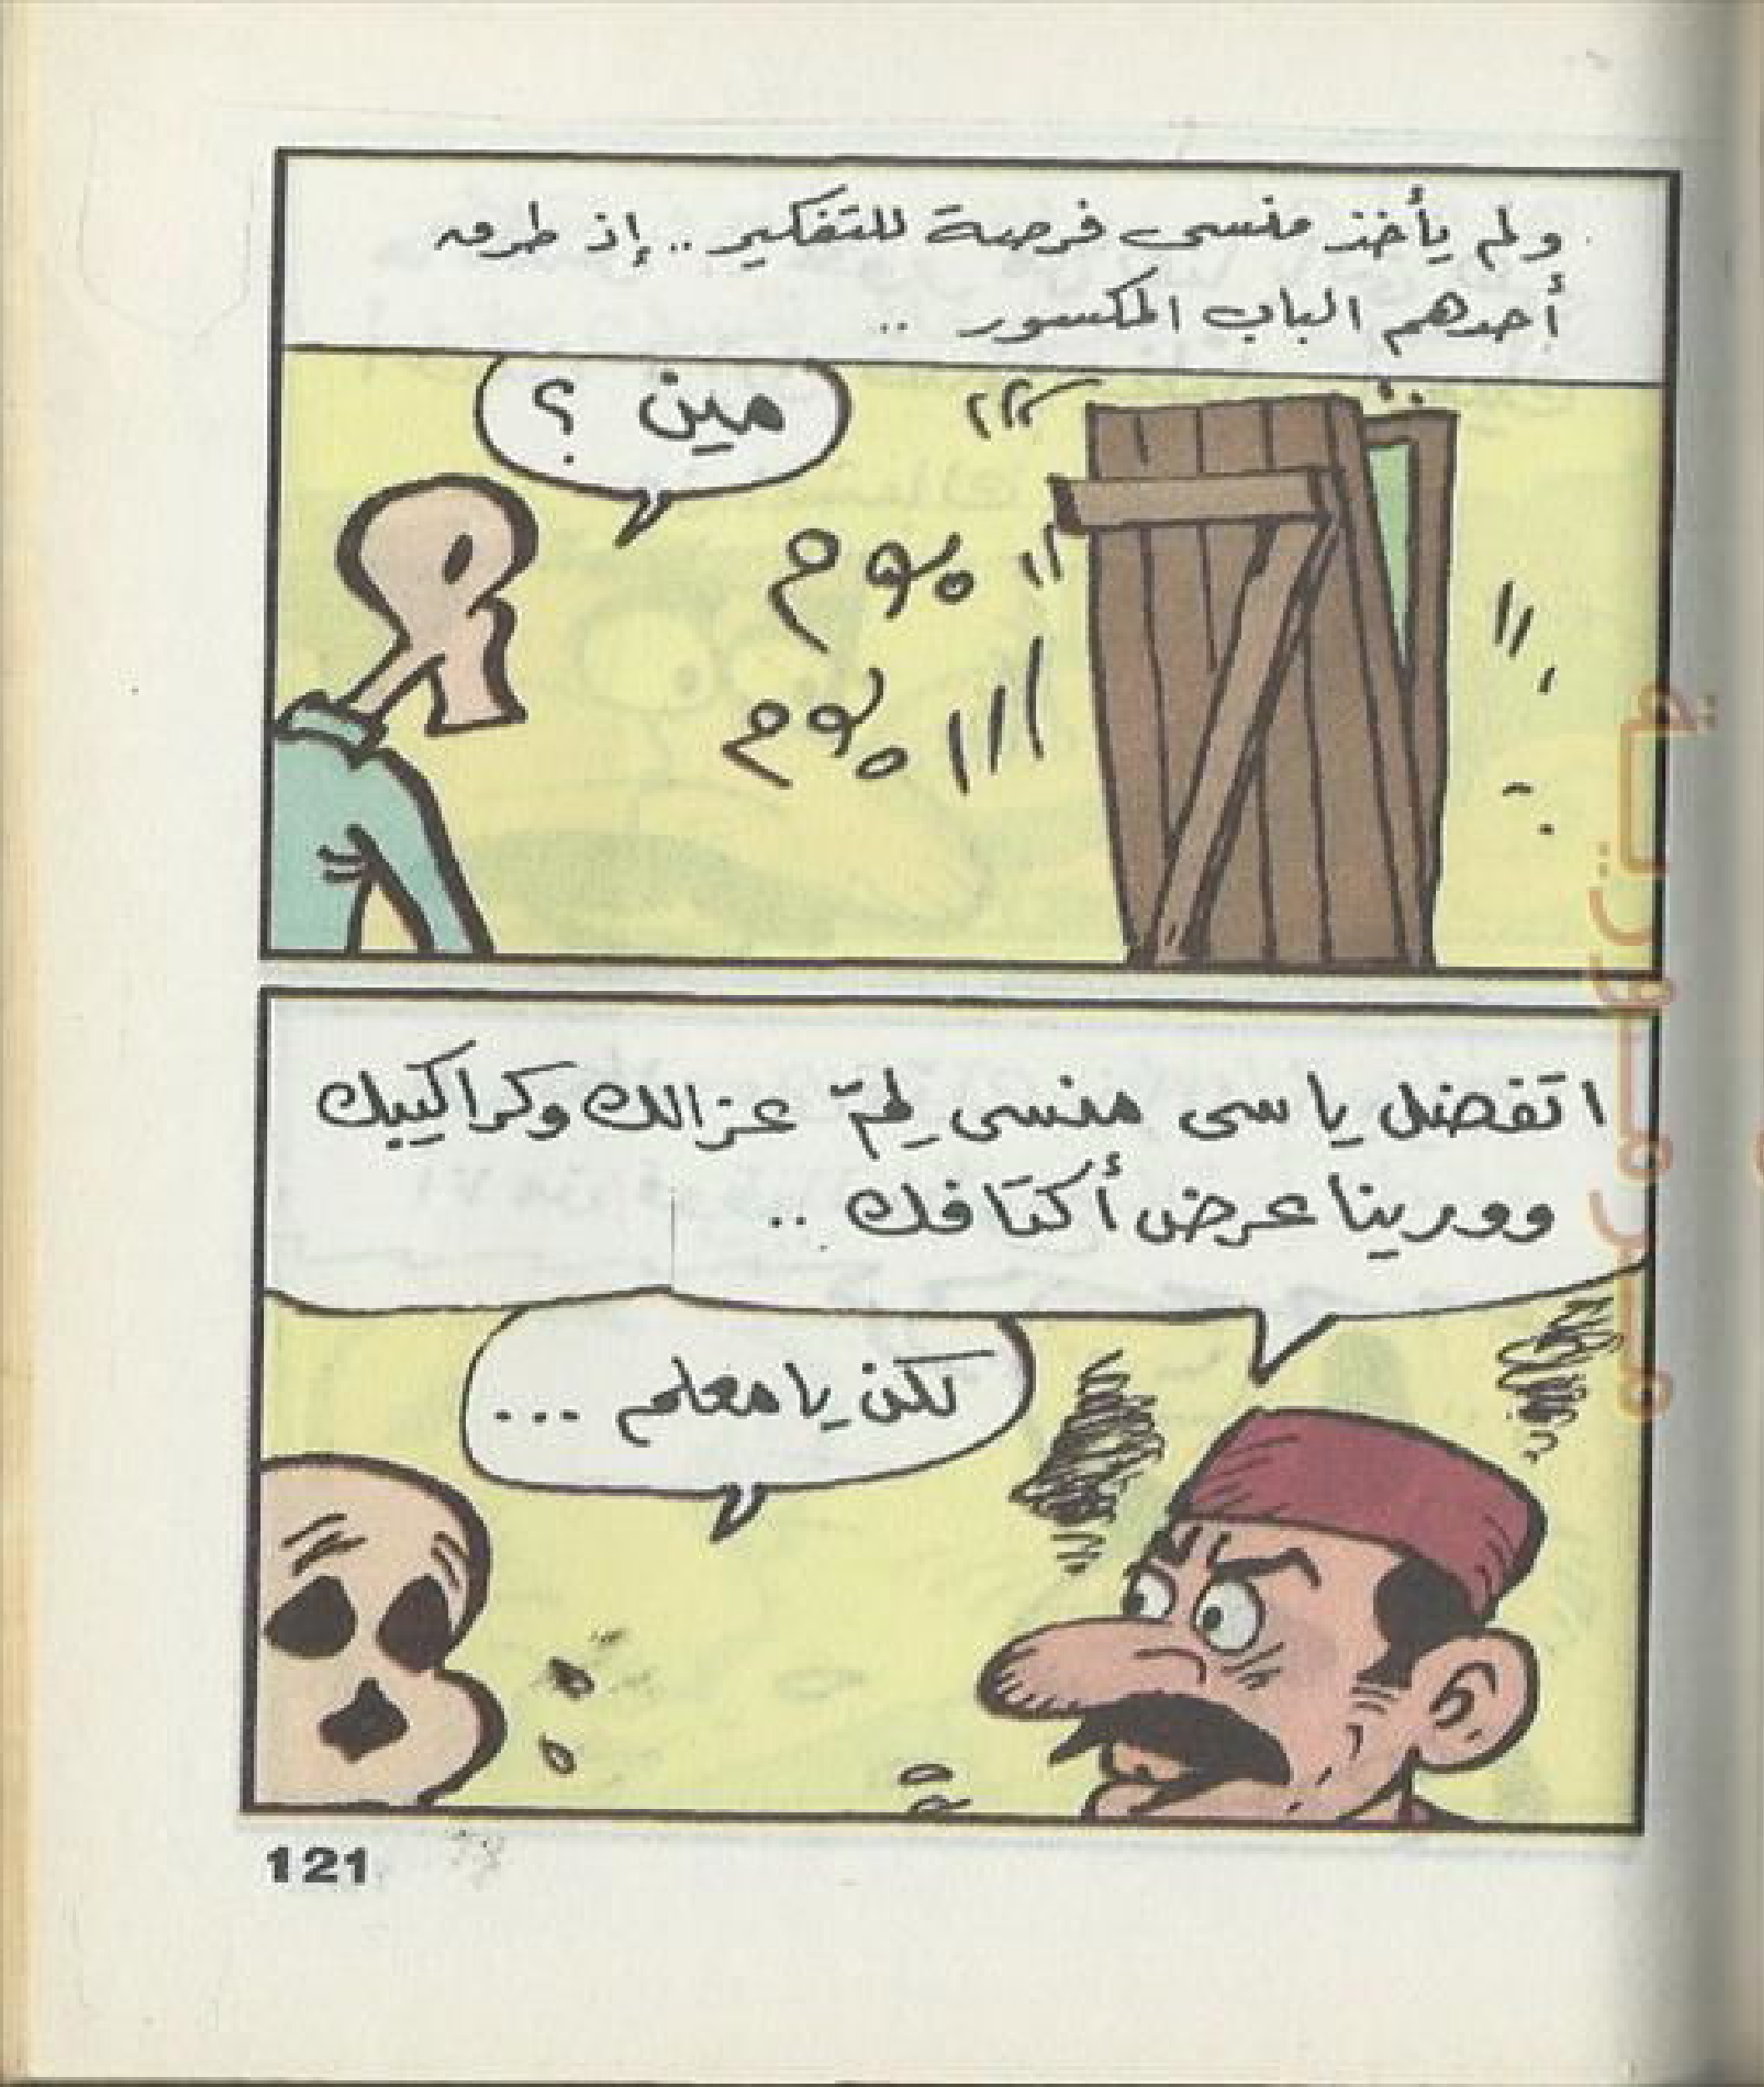 ولم يأخذ منسى فرصة للتفكير .. إذ طرق
أحدهم الباب المكسور ..
مين ؟
بوم
بوم
اتفضل يا سى منسى لِمّ عزالك وكراكيبك
وورينا عرض أكتافك ..
لكن يا معلم ...
121